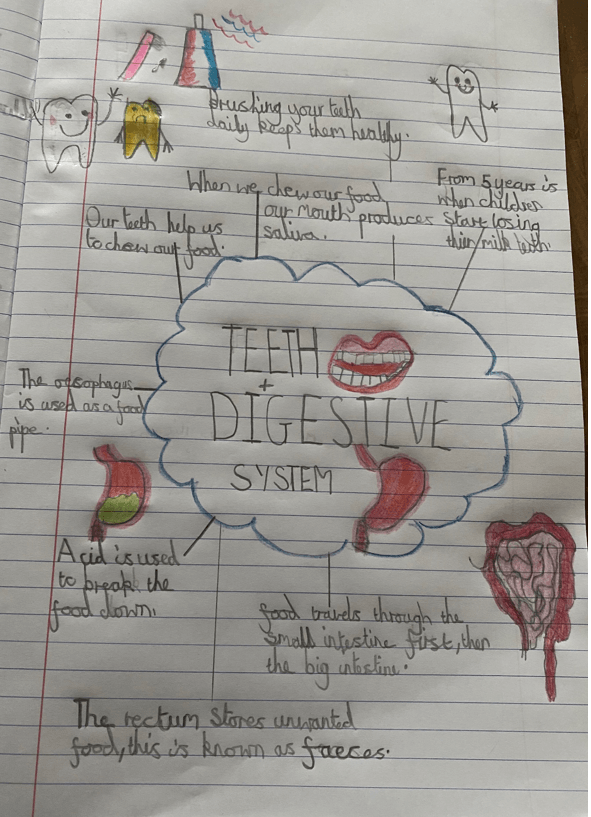 Brushing your teeth
daily keeps them healthy.
When we chew our food
our mouth produces
saliva.
From 5 years is
when children
start losing
thier milk teeth.
Our teeth help us
to chew our food.
TEETH
+
DIGESTIVE
SYSTEM
The oesophagus
is used as a food
pipe.
Acid is used
to break the
food down.
food travels through the
small intestine first, then
the big intestine.
The rectum stores unwanted
food, this is known as faeces.